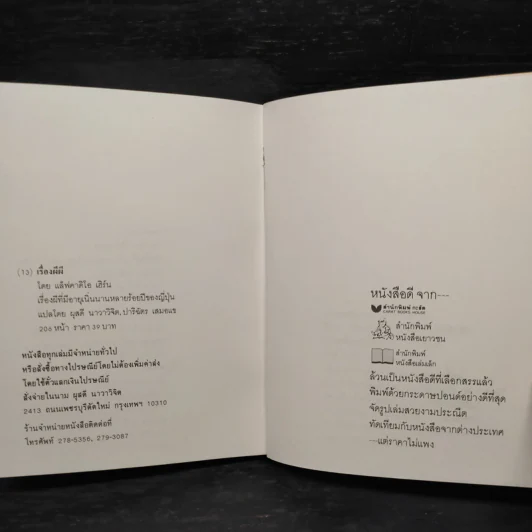 (13) เรื่องผีผี
โดย แล็ฟคาดิโอ เฮิร์น
เรื่องผีที่มีอายุเนิ่นนานหลายร้อยปีของญี่ปุ่น
แปลโดย ผุสดี นาวาวิจิต,ปาริฉัตร เสมอแข
206 หน้า ราคา 39 บาท
หนังสือทุกเล่มมีจำหน่ายทั่วไป
หรือสั่งซื้อทางไปรษณีย์โดยไม่ต้องเพิ่มค่าส่ง
โดยใช้ตั๋วแลกเงินไปรษณีย์
สั่งจ่ายในนาม ผุสดี นาวาวิจิต
2413 ถนนเพชรบุรีตัดใหม่ กรุงเทพฯ 10310
ร้านจำหน่ายหนังสือติดต่อที่
โทรศัพท์ 279-5356, 279-3087
หนังสือดี จาก---
สำนักพิมพ์ กะรัต
CARAT BOOKS HOUSE
สำนักพิมพ์
หนังสือเยาวชน
สำนักพิมพ์
หนังสือเล่มเล็ก
ล้วนเป็นหนังสือดีที่เลือกสรรแล้ว
พิมพ์ด้วยกระดาษปอนด์อย่างดีที่สุด
จัดรูปเล่มสวยงามประณีต
ทัดเทียมกับหนังสือจากต่างประเทศ
---แต่ราคาไม่แพง